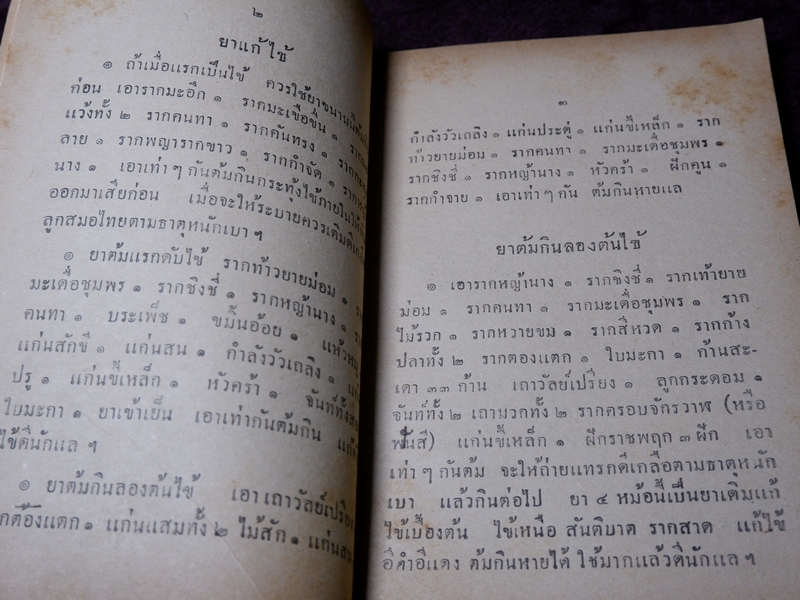 ๒
ยาแก้ไข้
๑ ถ้าเมื่อแรกเป็นไข้ ควรใช้ยาขนานนี้
ก่อน เอารากมะอึก ๑ รากมะเขือขื่น ๑
แว้งทั้ง ๒ รากคนทา ๑ รากคันทรง ๑
ลาย ๑ รากพญารากขาว ๑ รากกำจัด ๑
นาง ๑ เอาเท่า ๆ กันต้มกินกระทุ้งไข้ภายใน
ออกมาเสียก่อน เมื่อจะให้ระบายควรเติมดีเกลือ
ลูกสมอไทยตามธาตุหนักเบา ฯ
๑ ยาต้มแรกดับไข้ รากท้าวยายม่อม ๑
มะเดื่อชุมพร ๑ รากชิงชี่ ๑ รากหญ้านาง ๑
คนทา ๑ บระเพ็ช ๑ ขมิ้นอ้อย ๑
แก่นสักขี ๑ แก่นสน ๑ กำลังวัวเถลิง ๑
ปรู ๑ แก่นขี้เหล็ก ๑ หัวคร้า ๑ จันท์ทั้ง
ใบมะกา ๑ ยาเข้าเย็น เอาเท่ากันต้มกิน
ไข้ดีนักแล ฯ
๑ ยาต้มกินลองต้นไข้ เอาเถาวัลย์เปรียง
แตก ๑ แก่นแสมทั้ง ๒ ไม้สัก ๑ แก่นสน
๓
กำลังวัวเถลิง ๑ แก่นประดู่ ๑ แก่นขี้เหล็ก ๑ ราก
ท้าวยายม่อม ๑ รากคนทา ๑ รากมะเดื่อชุมพร ๑
รากชิงชี่ ๑ รากหญ้านาง ๑ หัวคร้า ๑ ฝักคูน ๑
รากกำจาย ๑ เอาเท่า ๆ กัน ต้มกินหายแล
ยาต้มกินลองต้นไข้
๑ เอารากหญ้านาง ๑ รากชิงชี่ ๑ รากเท้ายาย
ม่อม ๑ รากคนทา ๑ รากมะเดื่อชุมพร ๑ ราก
ไม้รวก ๑ รากหวายขม ๑ รากสีหวด ๑ รากก้าง
ปลาทั้ง ๒ รากตองแตก ๑ ใบมะกา ๑ ก้านสะ-
เดา ๓๓ ก้าน เถาวัลย์เปรียง ๑ ลูกกระดอม ๑
จันท์ทั้ง ๒ เถามวกทั้ง ๒ รากครอบจักรวาฬ (หรือ
ฟันสี) แก่นขี้เหล็ก ๑ ฝักราชพฤก ๓ ฝัก เอา
เท่า ๆ กันต้ม จะให้ถ่ายแทรกดีเกลือตามธาตุหนัก
เบา แล้วกินต่อไป ยา ๔ หม้อนี้เป็นยาเดิมแก้
ไข้เบื้องต้น ไข้เหนือ สันติบาต รากสาด แก้ไข้
อีดำอีแดง ต้มกินหายได้ ใช้มากแล้วดีนักแล ฯ